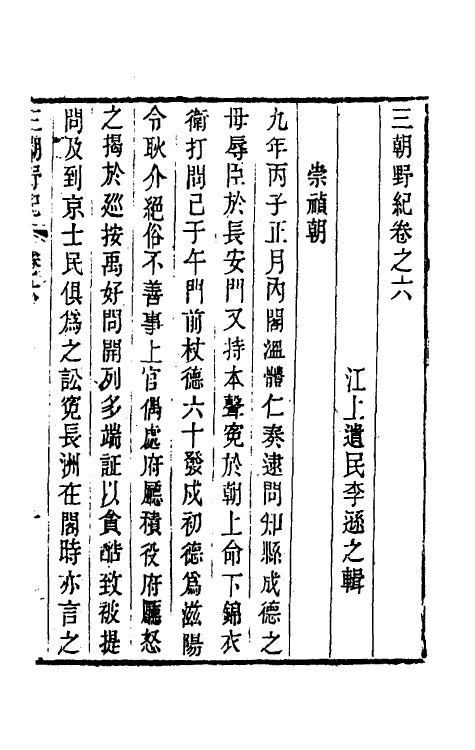 三朝野紀卷之六
江上遺民李遜之輯
崇禎朝
九年丙子正月內閣溫體仁奏逮問知縣成德之
母辱臣於長安門又持本聲寃於朝上命下錦衣
衛打問已于午門前杖德六十發戍初德爲滋陽
令耿介絕俗不善事上官偶處府廳積役府廳怒
之揭於巡按禹好問開列多端証以貪酷致被提
問及到京士民俱爲之訟寃長洲在閣時亦言之
三朝野紀 卷六